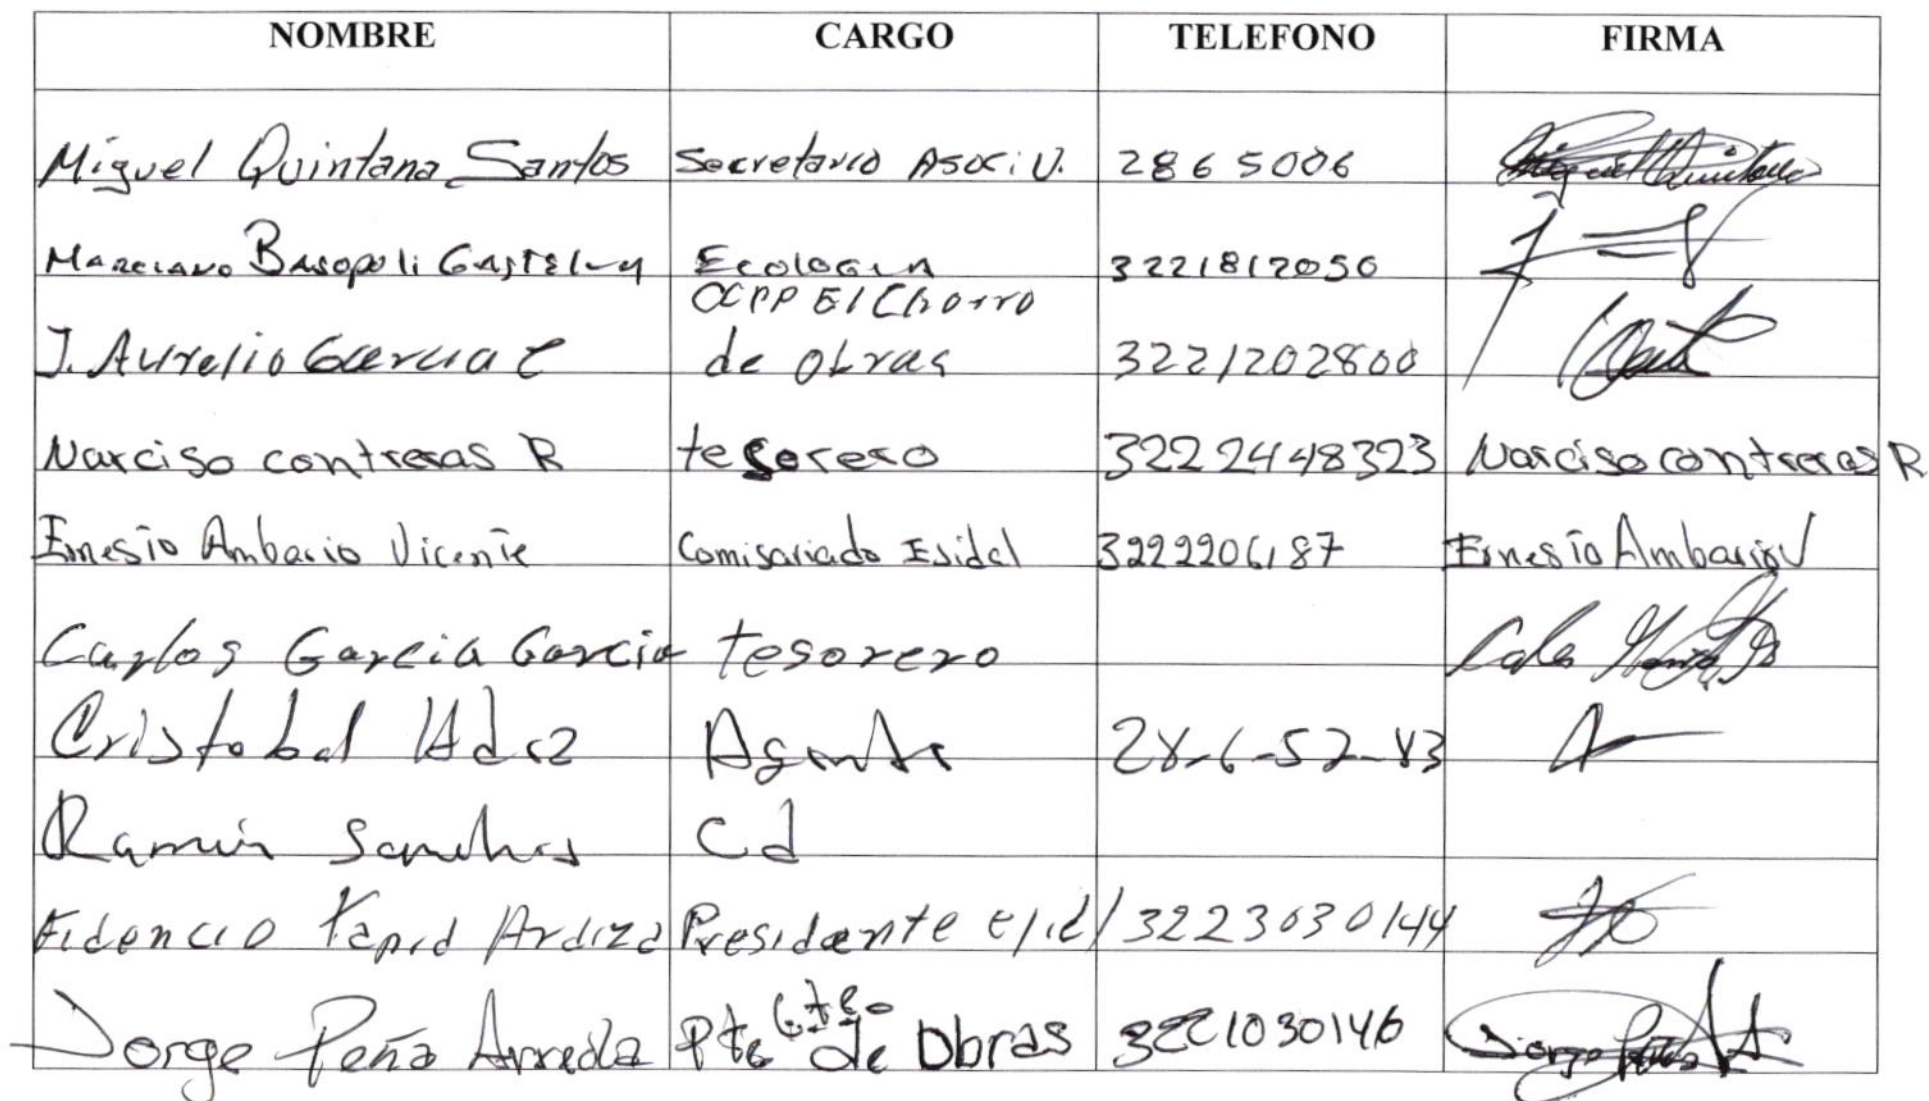 NOMBRE CARGO TELEFONO FIRMA
Miguel Quintana Santos Secretario Asoc. V. 2865006 Miguel Quintana
Marciano Basopoli Gastelum Ecologia 3221812050
OCPP El Chorro
J. Aurelio Garcia C de obras 3221202800
Narciso contreras R tesorero 3222448323 Narciso contreras R
Ernesto Ambario Vicente Comisariado Ejidal 3222206187 Ernesto Ambario V
Carlos Garcia Garcia tesorero
Cristobal Hdez Agente 28-6-52-83
Ramon Sanches Cd
Fidencio Tapia Ardiza Presidente ejidl 3223030144
Cte.
Jorge Peña Arreola Pte de Obras 3221030146 Jorge Peña A